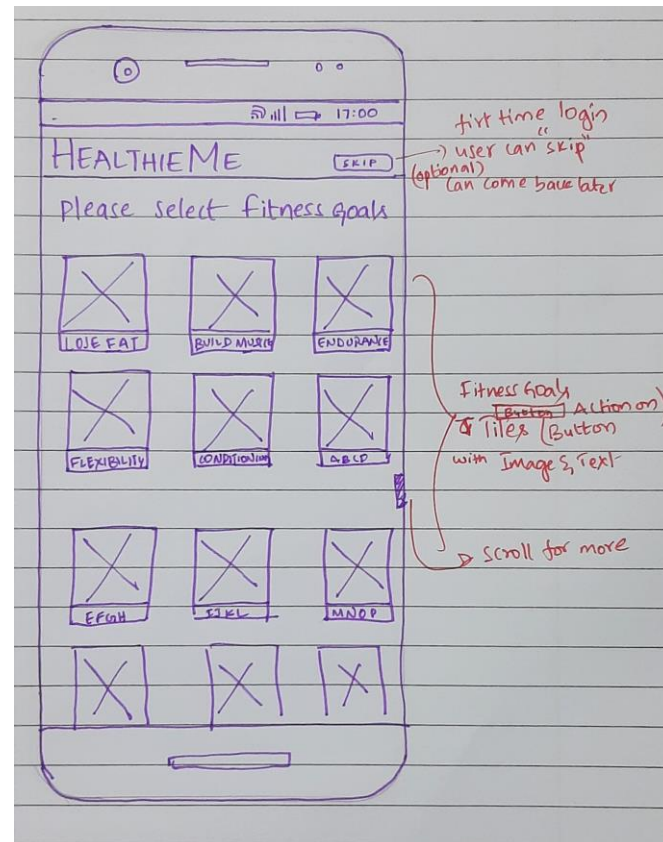 17:00
HEALTHIEME
SKIP
Please select fitness Goals
LOSE FAT
BUILD MUSCLE
ENDURANCE
FLEXIBILITY
CONDITIONING
ABCD
EFGH
IJKL
MNOP
first time login
user can "skip"
(optional)
can come back later
Fitness Goals
Button Action on
Tiles (Button
with Image & Text
Scroll for more